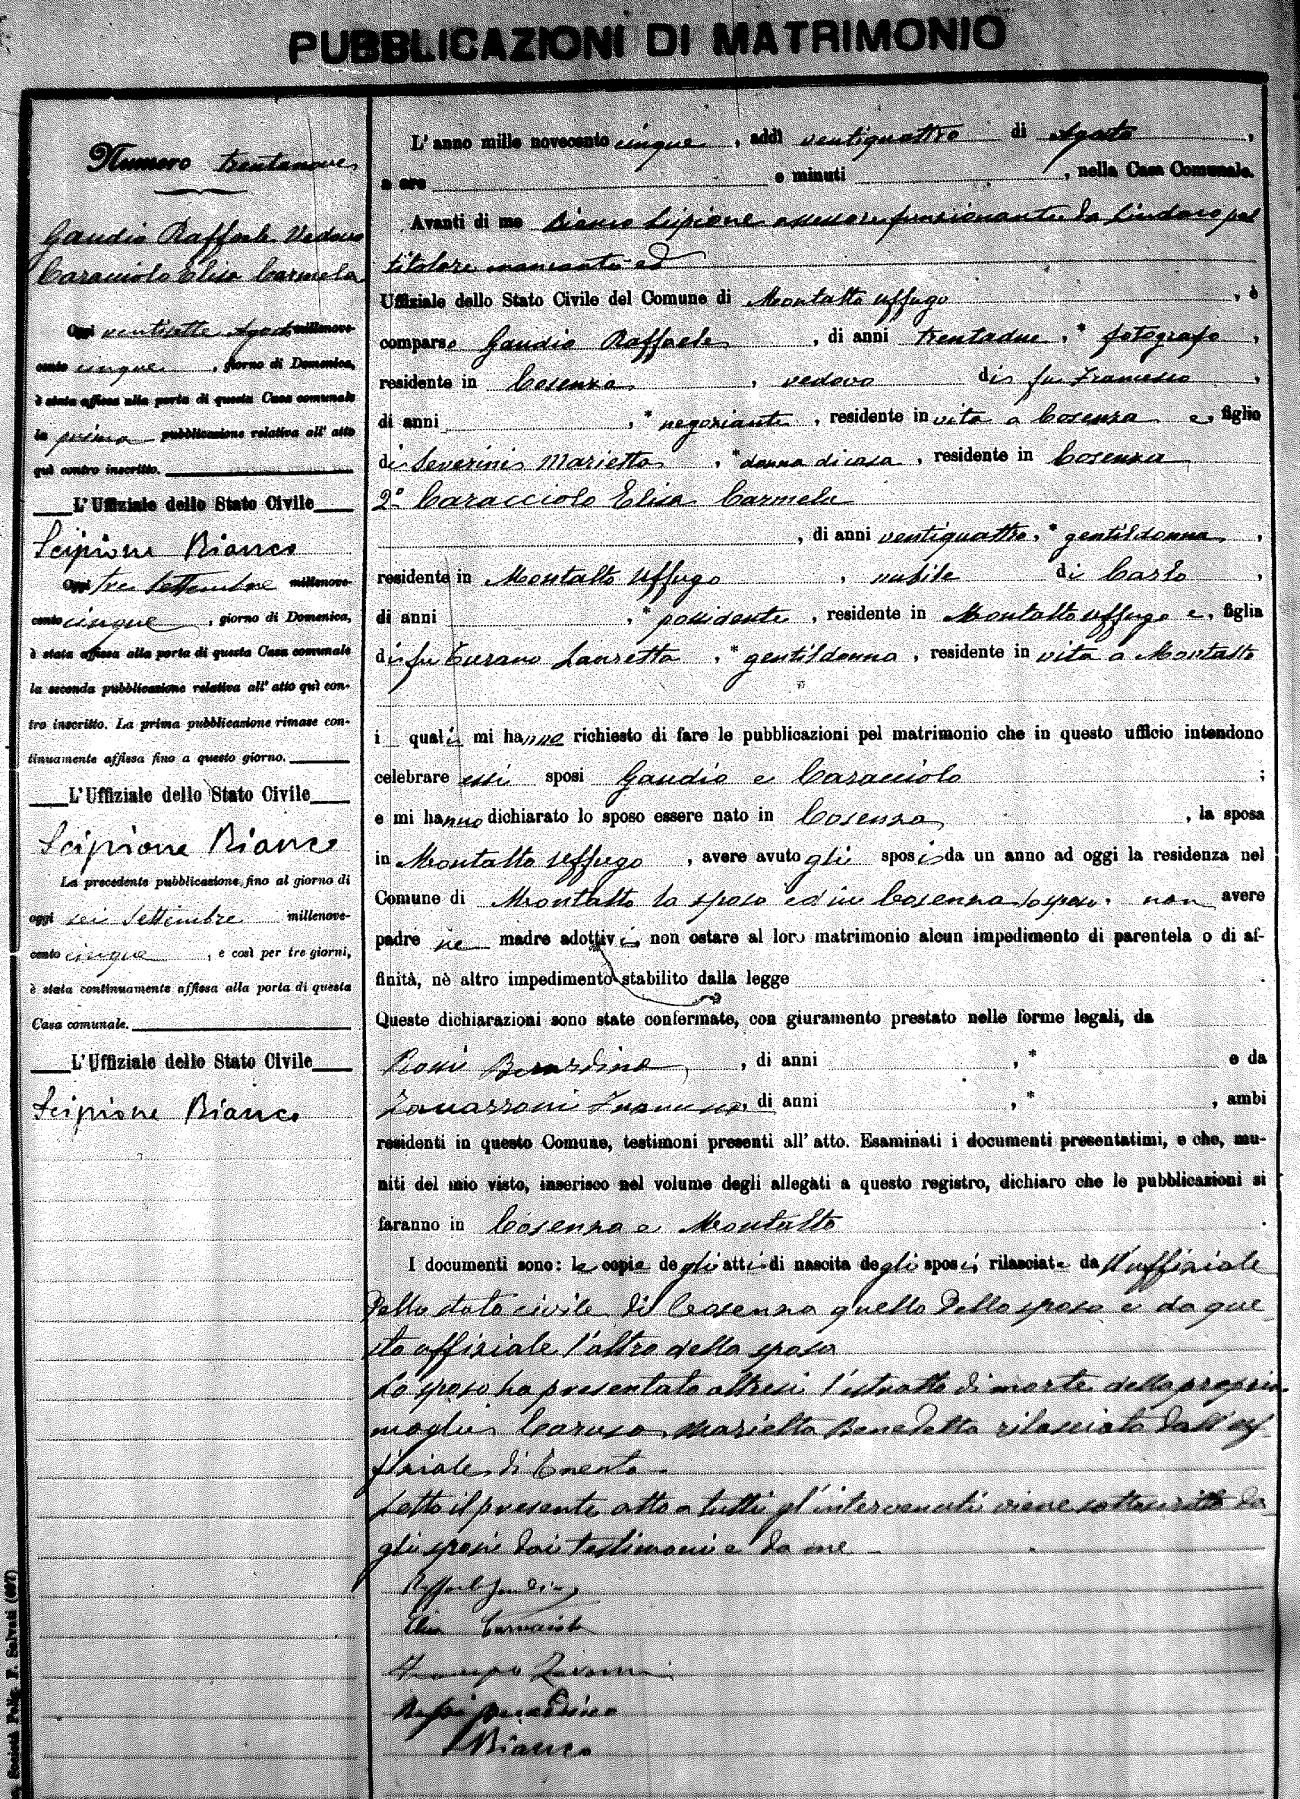 PUBBLICAZIONI DI MATRIMONIO
Numero trentanove
Gaudio Raffaele Vedovo
Caracciolo Elisa Carmela
Oggi ventisette Agosto millenove-
cento cinque, giorno di Domenica,
è stata affissa alla porta di questa Casa comunale
la prima pubblicazione relativa all' atto
quì contro inscritto.
L'Uffiziale dello Stato Civile
Scipione Bianco
Oggi tre Settembre millenove-
cento cinque, giorno di Domenica,
è stata affissa alla porta di questa Casa comunale
la seconda pubblicazione relativa all' atto quì con-
tro inscritto. La prima pubblicazione rimase con-
tinuamente affissa fino a questo giorno.
L'Uffiziale dello Stato Civile
Scipione Bianco
La precedente pubblicazione, fino al giorno di
oggi sei Settembre millenove-
cento cinque, e così per tre giorni,
è stata continuamente affissa alla porta di questa
Casa comunale.
L'Uffiziale dello Stato Civile
Scipione Bianco
Società Polig. F. Salvati (697)
L' anno mille novecento cinque, addì ventiquattro di Agosto,
a ore e minuti , nella Casa Comunale.
Avanti di me Bianco Scipione assessore funzionante da Sindaco pel
titolare mancante ed
Uffiziale dello Stato Civile del Comune di Montalto Uffugo, è
comparso Gaudio Raffaele, di anni trentadue, * fotografo,
residente in Cosenza, vedovo di fu Francesco,
di anni , * negoziante, residente in vita a Cosenza e, figlio
di Severini Marietta, * donna di casa, residente in Cosenza
2° Caracciolo Elisa Carmela
, di anni ventiquattro, * gentildonna,
residente in Montalto Uffugo, nubile di Carlo,
di anni , * possidente, residente in Montalto Uffugo e, figlia
di fu Turano Lauretta, * gentildonna, residente in vita a Montalto
i quali mi hanno richiesto di fare le pubblicazioni pel matrimonio che in questo ufficio intendono
celebrare essi sposi Gaudio e Caracciolo ;
e mi hanno dichiarato lo sposo essere nato in Cosenza, la sposa
in Montalto Uffugo, avere avuto gli sposi da un anno ad oggi la residenza nel
Comune di Montalto la sposa ed in Cosenza lo sposo. non avere
padre nè madre adottivi non ostare al loro matrimonio alcun impedimento di parentela o di af-
finità, nè altro impedimento stabilito dalla legge .
Queste dichiarazioni sono state confermate, con giuramento prestato nelle forme legali, da
Rossi Berardino, di anni , * e da
Francesco, di anni , * , ambi
residenti in questo Comune, testimoni presenti all' atto. Esaminati i documenti presentatimi, e che, mu-
niti del mio visto, inserisco nel volume degli allegati a questo registro, dichiaro che le pubblicazioni si
faranno in Cosenza e Montalto .
I documenti sono: le copie degli atti di nascita degli sposi, rilasciate da l'uffiziale
dello stato civile di Cosenza quello dello sposo e da que-
sto uffiziale l'altro della sposa
Lo sposo ha presentato altresì l'estratto di morte della propria
moglie Caruso Marietta Benedetta rilasciato dall'uf-
fiziale di
Letto il presente atto a tutti gl'intervenuti viene sottoscritto da
gli sposi dai testimoni e da me
Raffaele Gaudio
Elisa Caracciolo
Rossi Berardino
Bianco